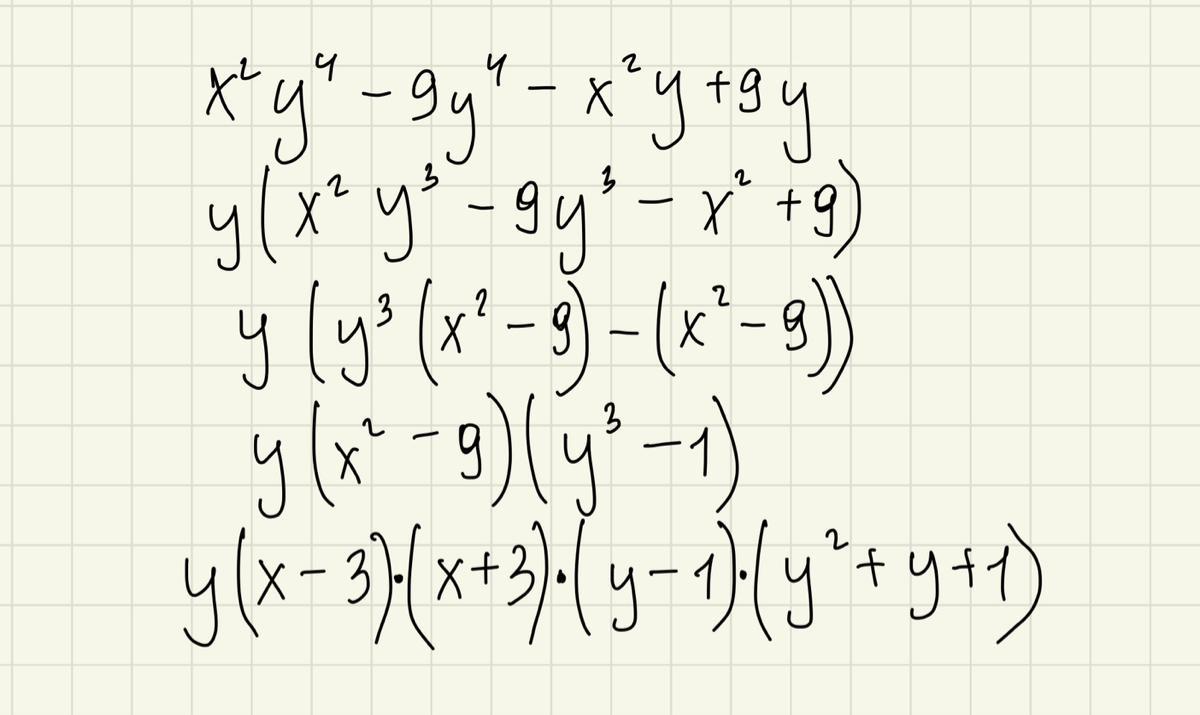 x² y⁴ − 9y⁴ − x² y + 9y
y(x² y³ − 9y³ − x² + 9)
y (y³ (x² − 9) − (x² − 9))
y (x² − 9)(y³ − 1)
y(x − 3)·(x + 3)·(y − 1)·(y² + y + 1)